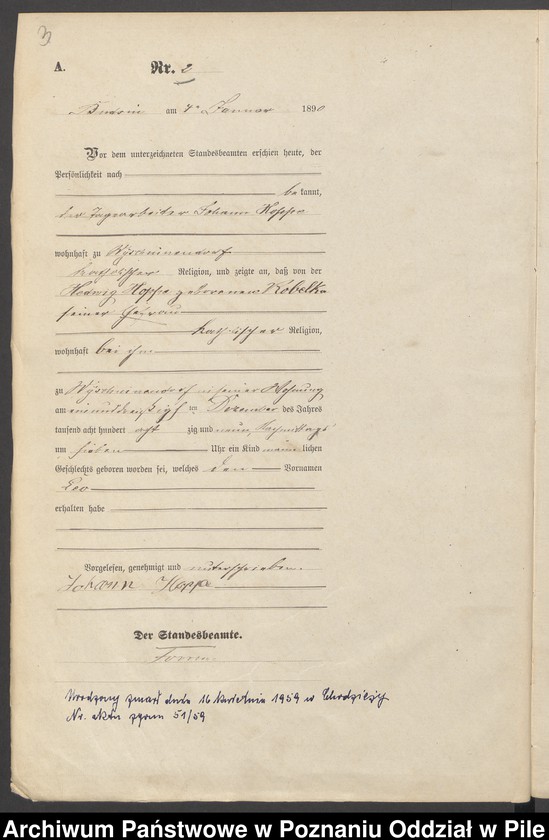 3
A. Nr. 2
Budsin am 4ten Januar 1890
Vor dem unterzeichneten Standesbeamten erschien heute, der
Persönlichkeit nach
bekannt,
der Tagearbeiter Johann Hoppe
wohnhaft zu
katholischer Religion, und zeigte an, daß von der
Hedwig Hoppe geborenen Kobelka
seiner Ehefrau
katholischer Religion,
wohnhaft bei ihm
zu in seiner Wohnung
am einunddreißigsten Dezember des Jahres
tausend acht hundert achtzig und neun, Nachmittags
um sieben Uhr ein Kind männlichen
Geschlechts geboren worden sei, welches den Vornamen
Leo
erhalten habe
Vorgelesen, genehmigt und unterschrieben.
Johann Hoppe
Der Standesbeamte.
Urodzony zmarł dnia 16 kwietnia 1959 w Chodzieży
Nr. aktu zgonu 51/59
Archiwum Państwowe w Poznaniu Oddział w Pile